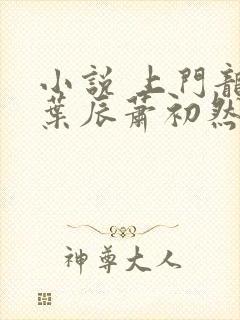 小説 上門龍
葉辰蕭初然
神尊大人